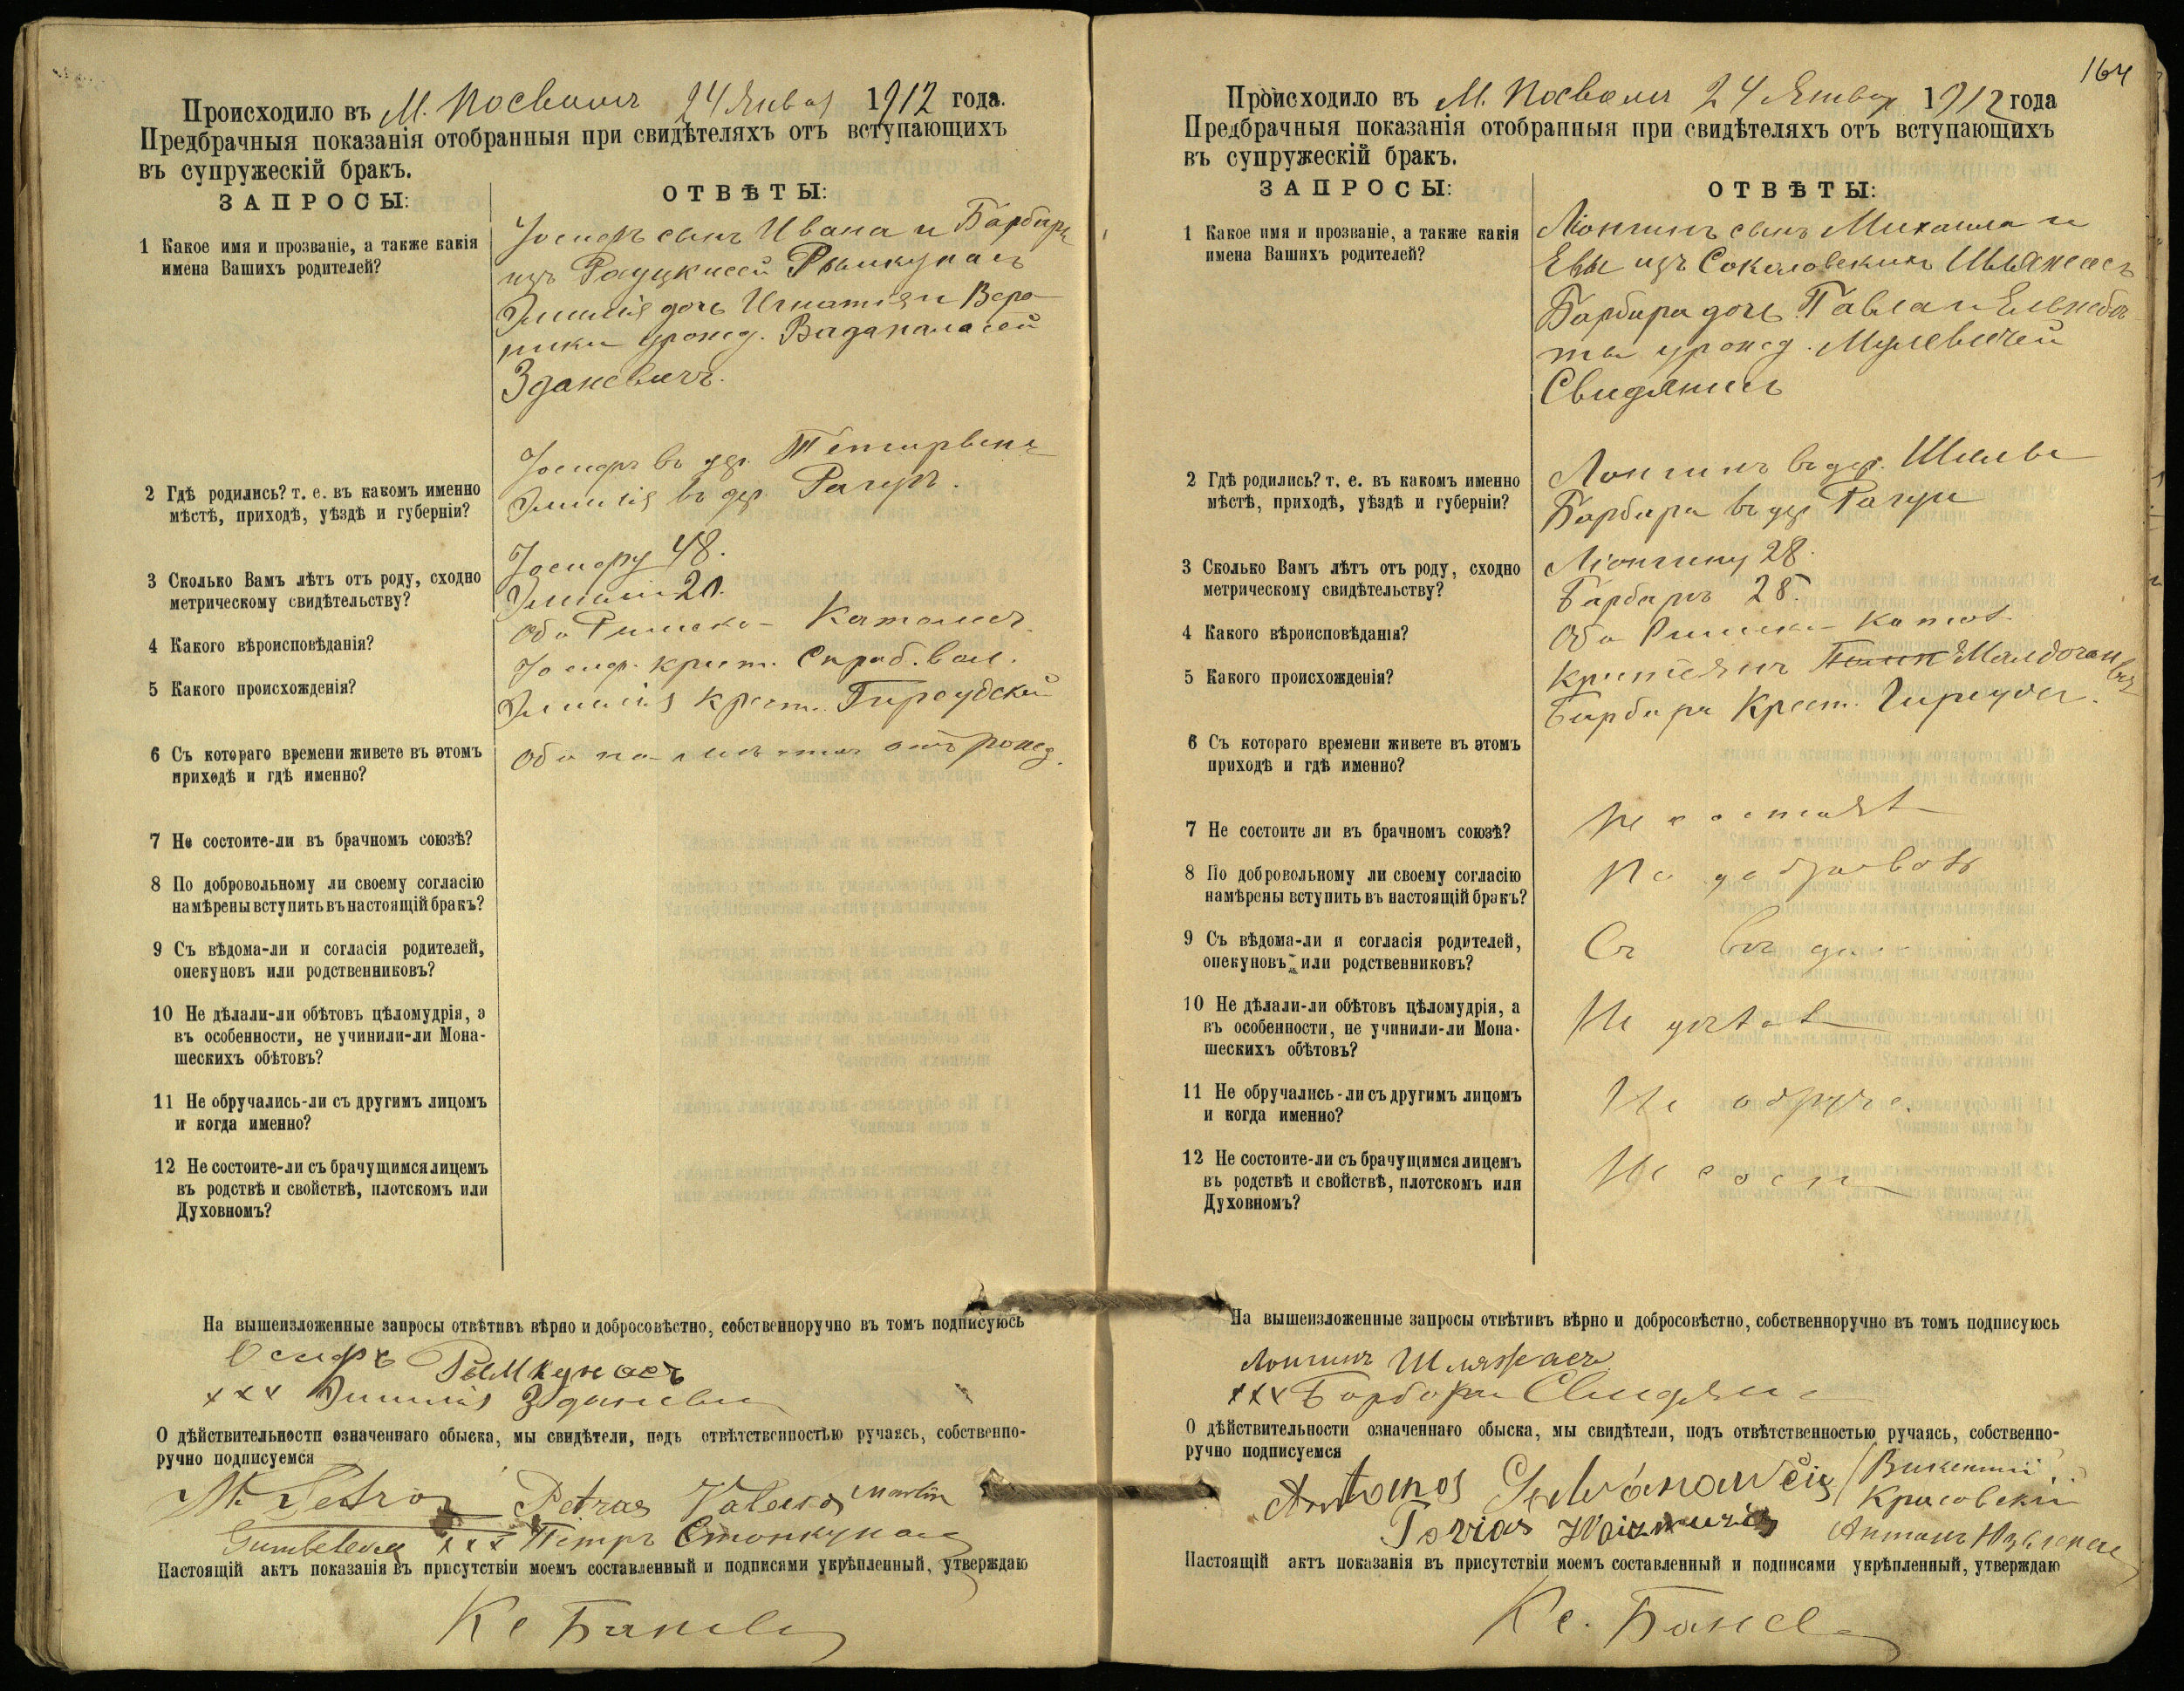 Происходило въ М. Посволь 24 Января 1912 года.
Предбрачныя показанія отобранныя при свидѣтеляхъ отъ вступающихъ
въ супружескій бракъ.
ЗАПРОСЫ:
ОТВѢТЫ:
1 Какое имя и прозваніе, а также какія
имена Вашихъ родителей?
Іосифъ сынъ Ивана и Барбары
изъ Рымкунасъ
Эмилія дочь Игнатія и Веро-
ники урожд.
Здансвичъ.
2 Гдѣ родились? т. е. въ какомъ именно
мѣстѣ, приходѣ, уѣздѣ и губерніи?
Іосифъ въ дер.
Эмилія въ дер.
3 Сколько Вамъ лѣтъ отъ роду, сходно
метрическому свидѣтельству?
Іосифу 48.
Эмиліи 20.
4 Какого вѣроисповѣданія?
Оба Римско- Католич.
5 Какого происхожденія?
Іосиф. крест. Скраб. вол.
Эмилія крест. Гироудской
6 Съ котораго времени живете въ этомъ
приходѣ и гдѣ именно?
Оба отъ рожд.
7 Не состоите-ли въ брачномъ союзѣ?
8 По добровольному ли своему согласію
намѣрены вступить въ настоящій бракъ?
9 Съ вѣдома-ли и согласія родителей,
опекуновъ или родственниковъ?
10 Не дѣлали-ли обѣтовъ цѣломудрія, а
въ особенности, не учинили-ли Мона-
шескихъ обѣтовъ?
11 Не обручались-ли съ другимъ лицомъ
и когда именно?
12 Не состоите-ли съ брачущимся лицемъ
въ родствѣ и свойствѣ, плотскомъ или
Духовномъ?
На вышеизложенные запросы отвѣтивъ вѣрно и добросовѣстно, собственноручно въ томъ подписуюсь
Осифъ Рымкунасъ
xxx Эмилія Здансви
О дѣйствительности означеннаго обыска, мы свидѣтели, подъ отвѣтственностью ручаясь, собственно-
ручно подписуемся
Petras Martin
xxx Петръ Стонкунас
Настоящій актъ показанія въ присутствіи моемъ составленный и подписями укрѣпленный, утверждаю
Кс
164
Происходило въ М. Посволь 24 Январ 1912 года
Предбрачныя показанія отобранныя при свидѣтеляхъ отъ вступающихъ
въ супружескій бракъ.
ЗАПРОСЫ:
ОТВѢТЫ:
1 Какое имя и прозваніе, а также какія
имена Вашихъ родителей?
Лонгинъ сынъ Михаила и
Евы изъ Соколовскихъ Шляжасъ
Барбара дочь Павла и Ельжбѣ
ты урожд. Мулевичей
2 Гдѣ родились? т. е. въ какомъ именно
мѣстѣ, приходѣ, уѣздѣ и губерніи?
Лонгинъ въ дер.
Барбара въ дер.
3 Сколько Вамъ лѣтъ отъ роду, сходно
метрическому свидѣтельству?
Лонгину 28.
Барбарѣ 28.
4 Какого вѣроисповѣданія?
Оба Римско- Катол.
5 Какого происхожденія?
Барбара Крест.
6 Съ котораго времени живете въ этомъ
приходѣ и гдѣ именно?
7 Не состоите ли въ брачномъ союзѣ?
Не состоят
8 По добровольному ли своему согласію
намѣрены вступить въ настоящій бракъ?
По добровол
9 Съ вѣдома-ли и согласія родителей,
опекуновъ или родственниковъ?
Съ вѣдом
10 Не дѣлали-ли обѣтовъ цѣломудрія, а
въ особенности, не учинили-ли Мона-
шескихъ обѣтовъ?
Не
11 Не обручались-ли съ другимъ лицомъ
и когда именно?
Не обруча.
12 Не состоите-ли съ брачущимся лицемъ
въ родствѣ и свойствѣ, плотскомъ или
Духовномъ?
Не сост
На вышеизложенные запросы отвѣтивъ вѣрно и добросовѣстно, собственноручно въ томъ подписуюсь
Лонгинъ Шляжасъ
xxx Барбара
О дѣйствительности означеннаго обыска, мы свидѣтели, подъ отвѣтственностью ручаясь, собственно-
ручно подписуемся
Antanas
Викентій
Красовскій
Антонъ
Настоящій актъ показанія въ присутствіи моемъ составленный и подписями укрѣпленный, утверждаю
Кс.